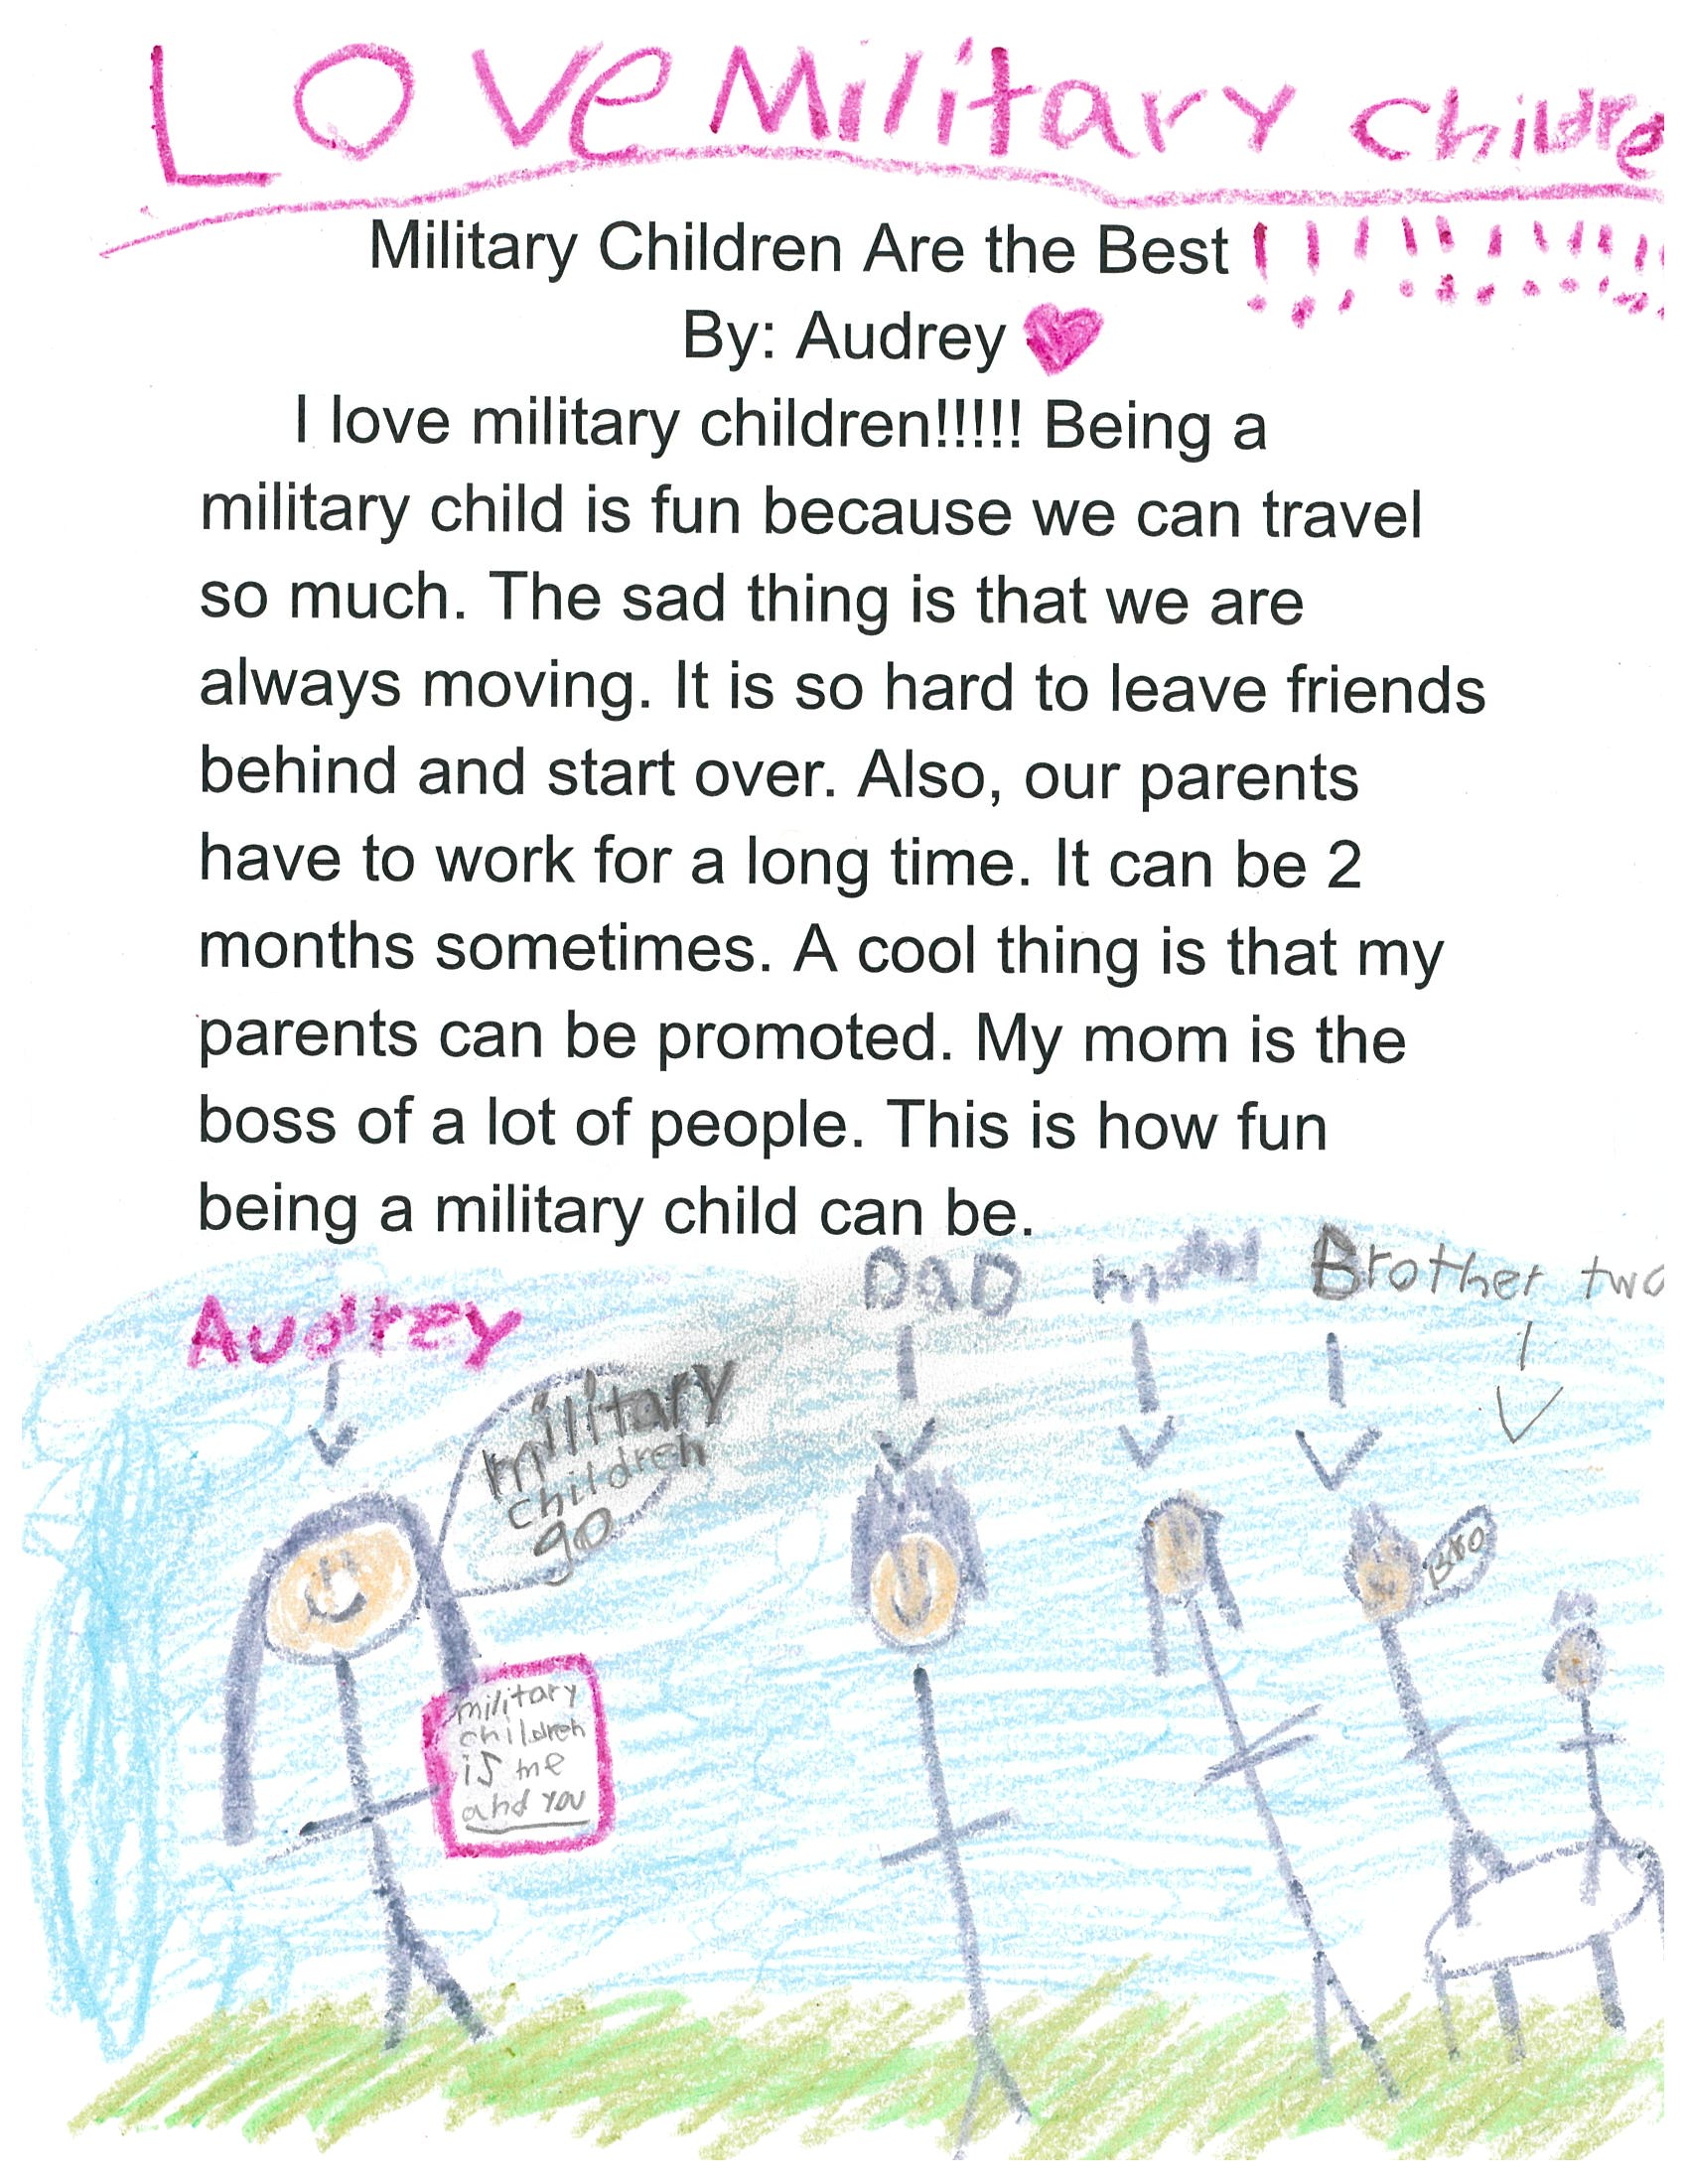 Love Military Childre
Military Children Are the Best ! ! ! ! ! ! ! ! ! ! !
By: Audrey
I love military children!!!!! Being a
military child is fun because we can travel
so much. The sad thing is that we are
always moving. It is so hard to leave friends
behind and start over. Also, our parents
have to work for a long time. It can be 2
months sometimes. A cool thing is that my
parents can be promoted. My mom is the
boss of a lot of people. This is how fun
being a military child can be.
Audrey
DaD
Brother two
military
children
go
BRO
military
children
is me
and you